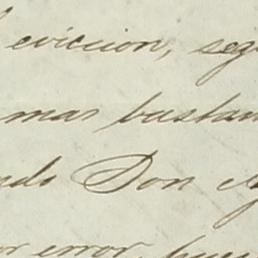 eviccion, seg
mas bastan
ndo Don A
or error, bue